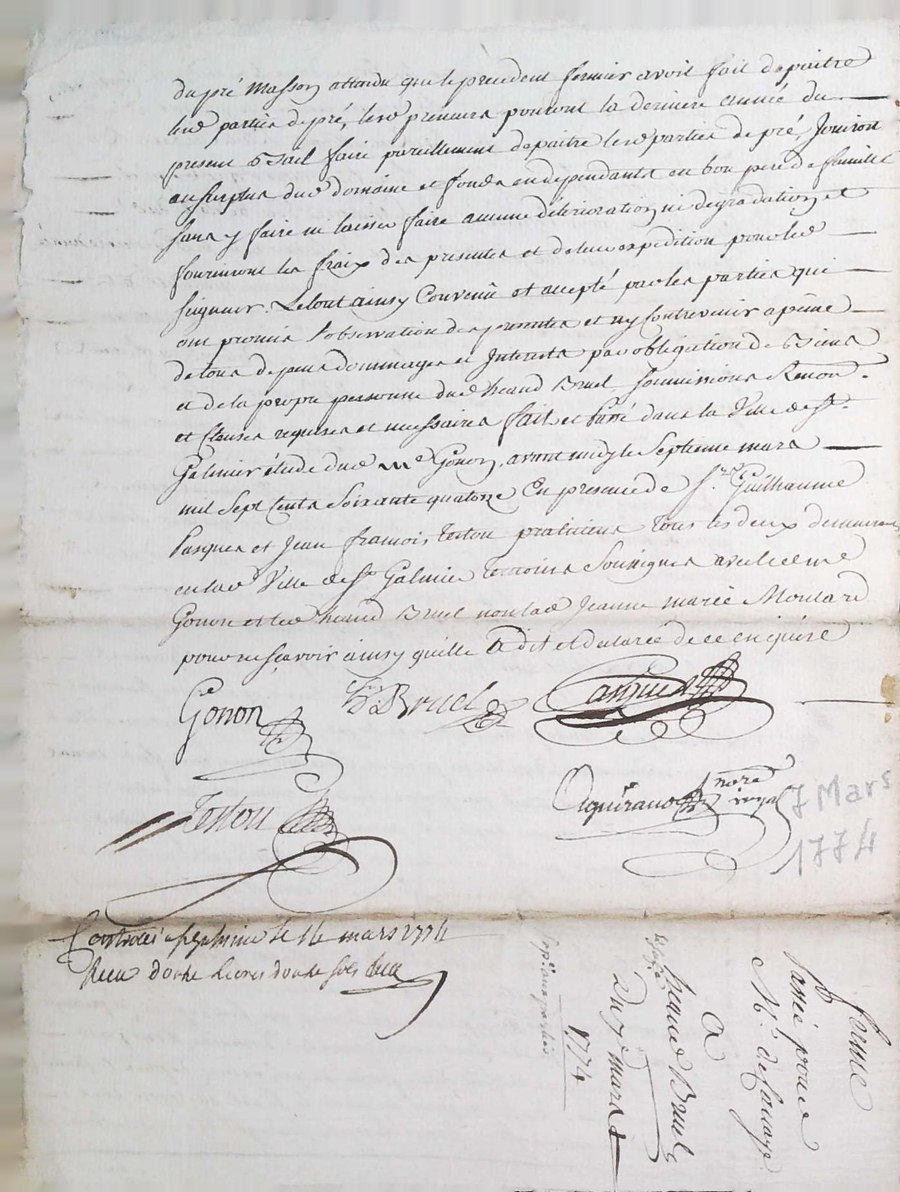 du pré Masson attendu que le precedent fermier avoit fait depaitre
les parties de pré, les preneurs pouront la derniere année du
present Bail faire pareillement depaitre les parties de pré, Jouiront
au surplus dud domaine et fonds en dependants en bon pere de famille
sans y faire ni laisser faire aucune déterioration ni degradation et
fourniront les fraix des presentes et de leur expedition pour led
seigneur. Le tout ainsy Convenû et accepté par les parties qui
ont promis l'observation des presentes et n'y contrevenir a peine
de tous depens dommages et Interets par obligation de Biens
et de la propre personne dud heaud Bruel soumissions Renon.
et Clauses requises et necessaires fait et passé dans la Ville de St.
Galmier étude dud Me Gonon, avant midy le Septieme mars
mil Sept Cents Soixante quatorze En presence de Sr. Guilhaume
Pasques et Jean francois teston praticiens tous les deux demeurans
en lad Ville de St Galmier temoins Soussignes avec led me
Gonon et led heaud Bruel non lad Jeanne marie Moulard
pour ne sçavoir ainsy quelle a dit et declarée de ce enquise
Gonon
Bruel
Teston
nore royal
7 Mars
1774
Controlé a St galmier le 14 mars 1774
Receu douze Livres douze sols
ferme
passé pour
Mr. de
A
heaud Bruel
Du 7e mars
1774